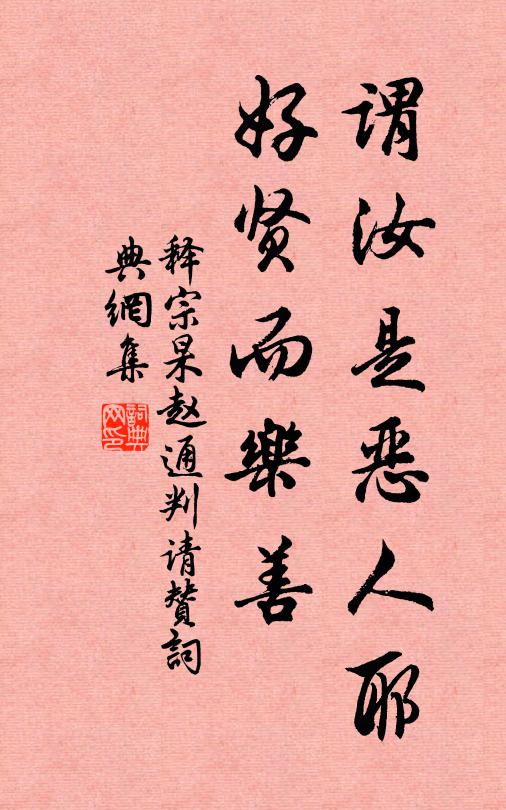 谓汝是恶人耶
好贤而樂善
释宗杲赵通判请赞詞
典網集
詞典
网印